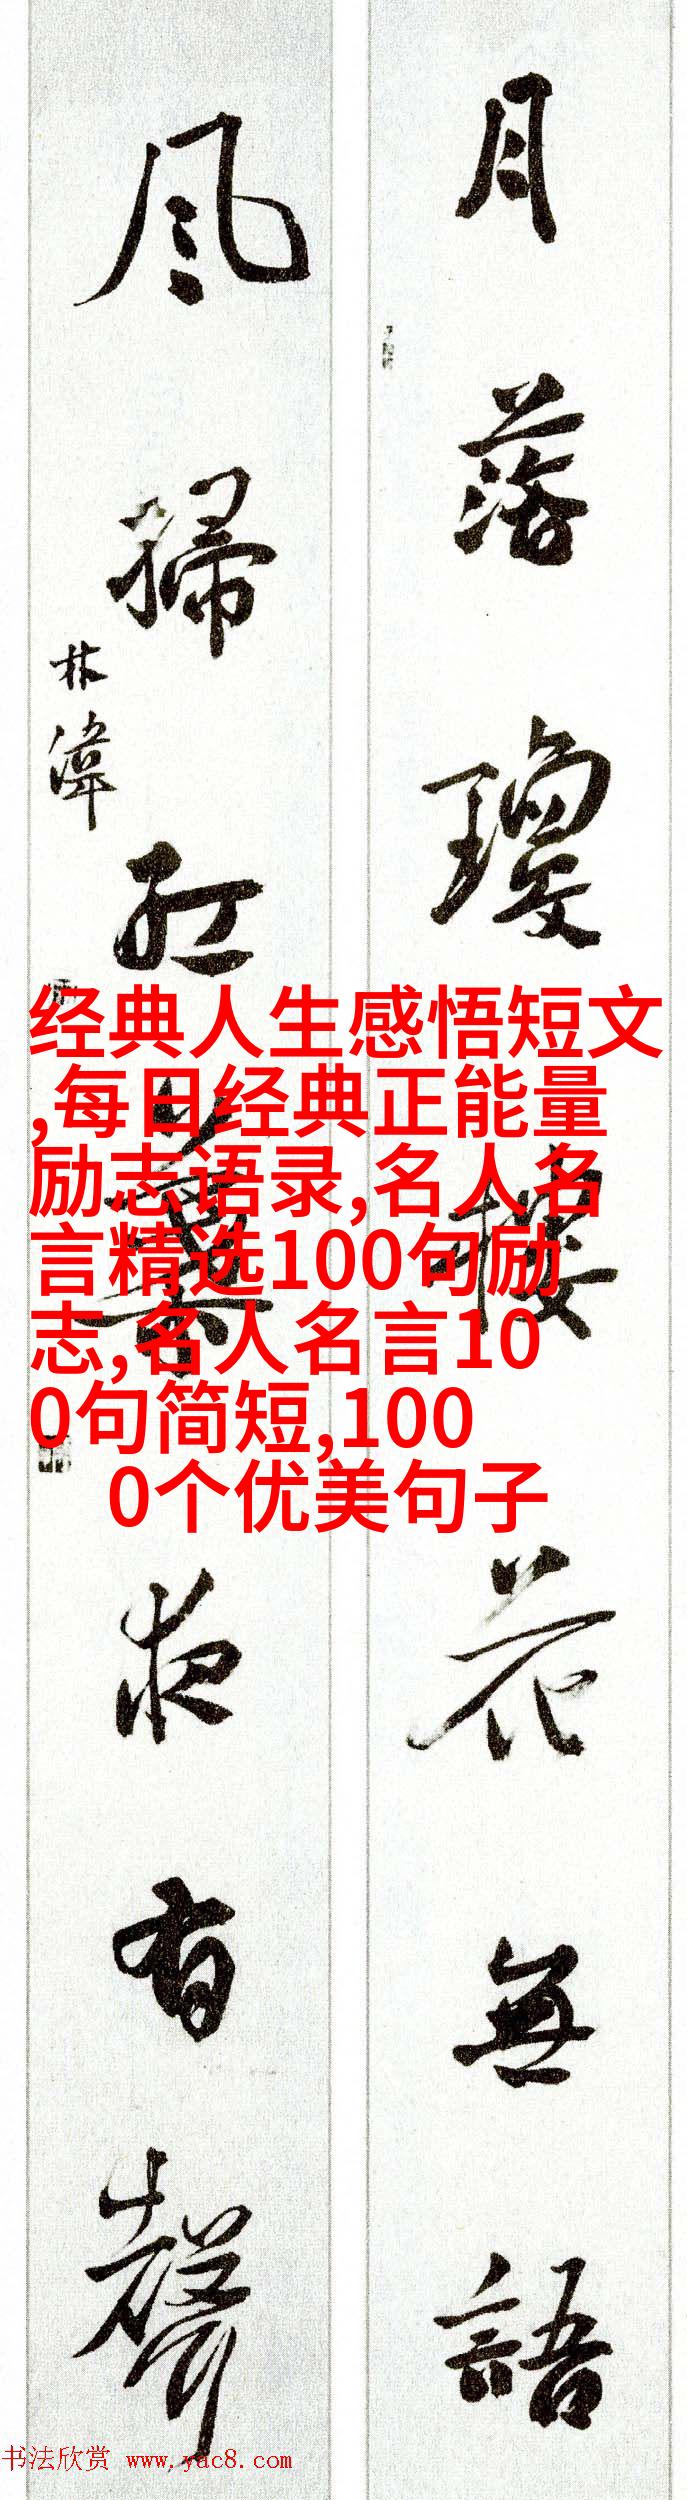 月落瓊樓花無語
风掃紅
夜有聲
林
经典人生感悟短文
,每日经典正能量
励志语录,名人名
言精选100句励
志,名人名言10
0句简短,100
0个优美句子
书法欣赏 www.yac8.com